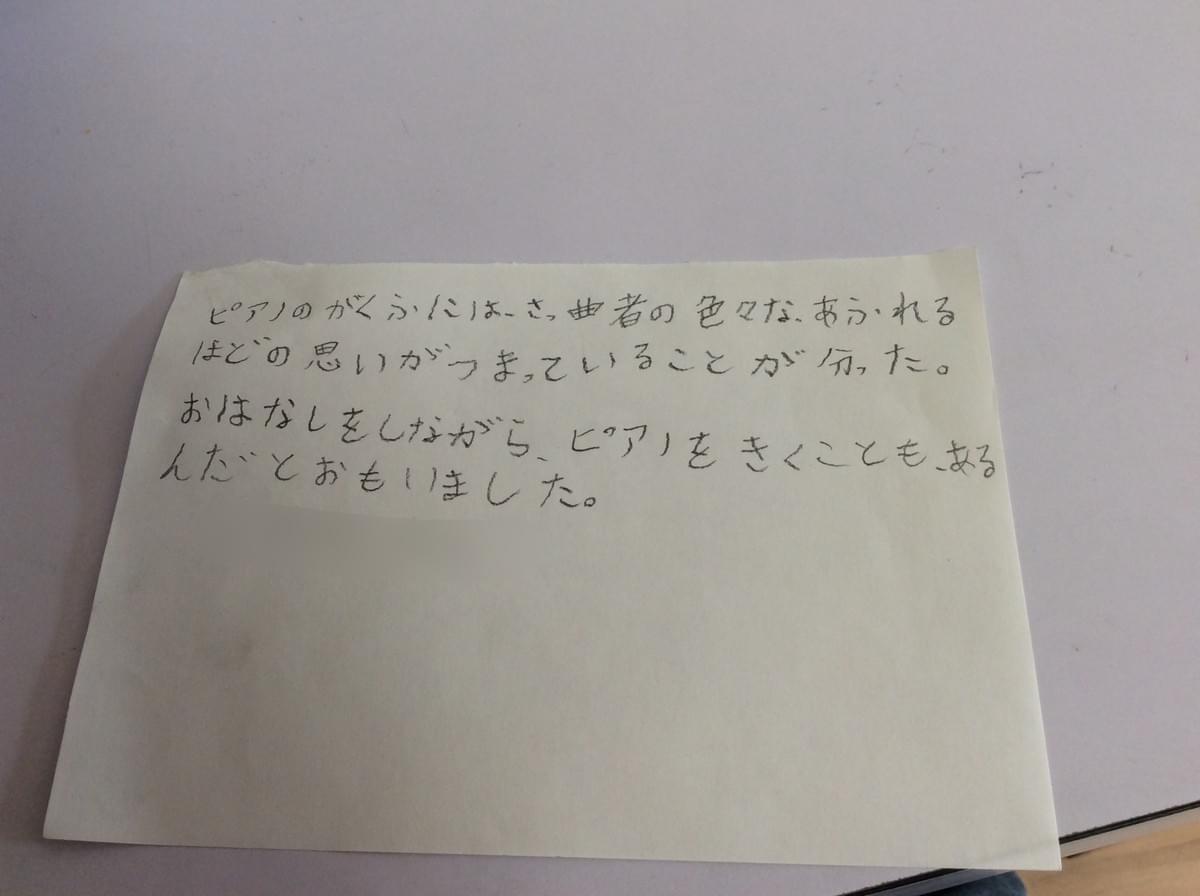 ピアノのがくふには、さっ曲者の色々な、あふれる
ほどの思いがつまっていることが分った。
おはなしをしながら、ピアノをきくことも、ある
んだとおもいました。